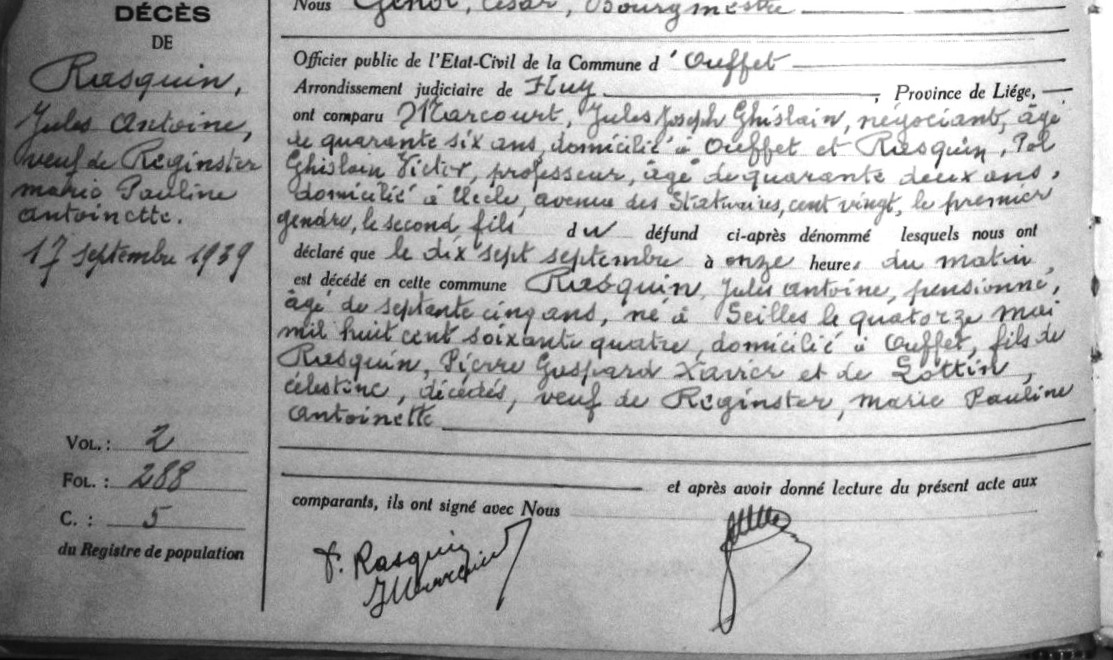 DÉCÈS
DE
Rasquin,
Jules Antoine,
veuf de Reginster
marie Pauline
antoinette.
17 septembre 1939
VOL. : 2
FOL. : 288
C. : 5
du Registre de population
Nous Genot, César, Bourgmestre
Officier public de l'Etat-Civil de la Commune d'Ouffet
Arrondissement judiciaire de Huy, Province de Liége,
ont comparu Marcourt, Jules Joseph Ghislain, négociant, âgé
de quarante six ans, domicilié à Ouffet et Rasquin, Pol
Ghislain Victor, professeur, âgé de quarante deux ans,
domicilié à Uccle, avenue des Statuaires, cent vingt, le premier
gendre, le second fils du défund ci-après dénommé lesquels nous ont
déclaré que le dix sept septembre à onze heures du matin,
est décédé en cette commune Rasquin, Jules antoine, pensionné,
âgé de septante cinq ans, né à Seilles le quatorze mai
mil huit cent soixante quatre, domicilié à Ouffet, fils de
Rasquin, Pierre Gaspard Xavier et de Lottin,
célestine, décédés, veuf de Reginster, marie Pauline
antoinette
et après avoir donné lecture du présent acte aux
comparants, ils ont signé avec Nous
P. Rasquin